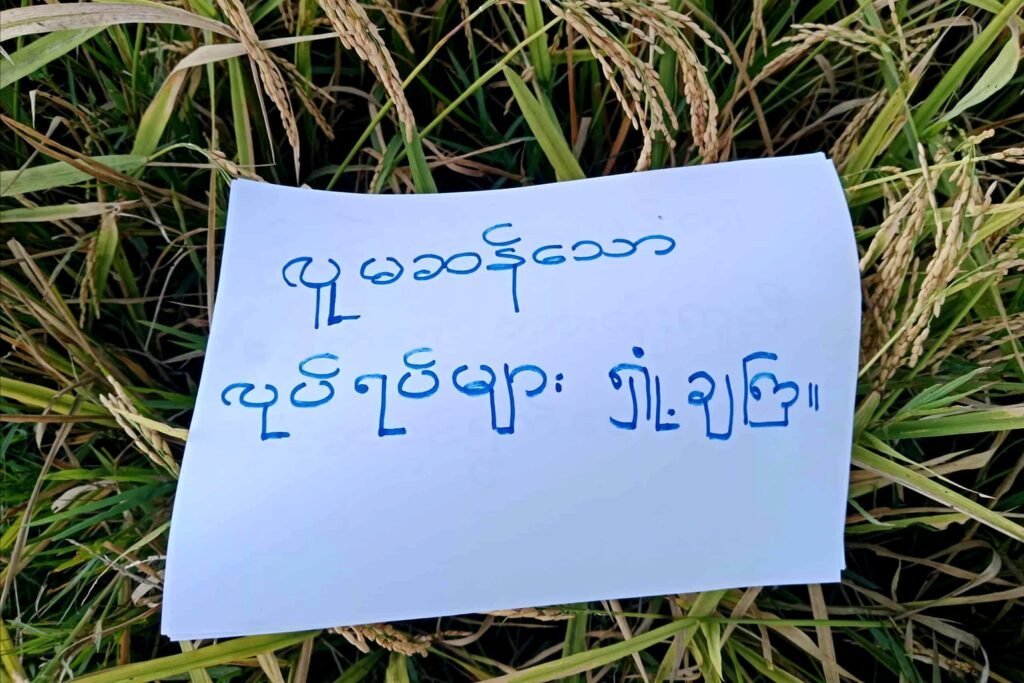 လူမဆန်သော
လုပ်ရပ်များ ရှုံ့ချကြ။